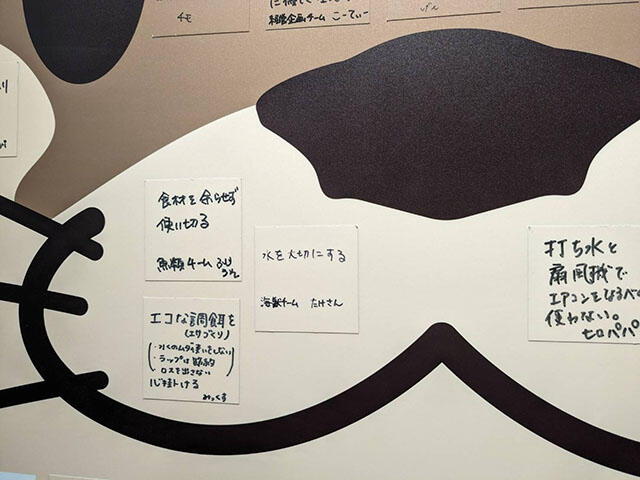 チモ
相談企画チーム こーてぃー
げん
食材を余らせず
使い切る
魚類チーム ふり
水を大切にする
海獣チーム たけさん
エコな調餌を
(エサづくり)
・水のムダ使いをしない
・ラップは節約
・ロスを出さない
心掛ける
みっくす
打ち水と
扇風機で
エアコンをなるべく
使わない。
セロパパ